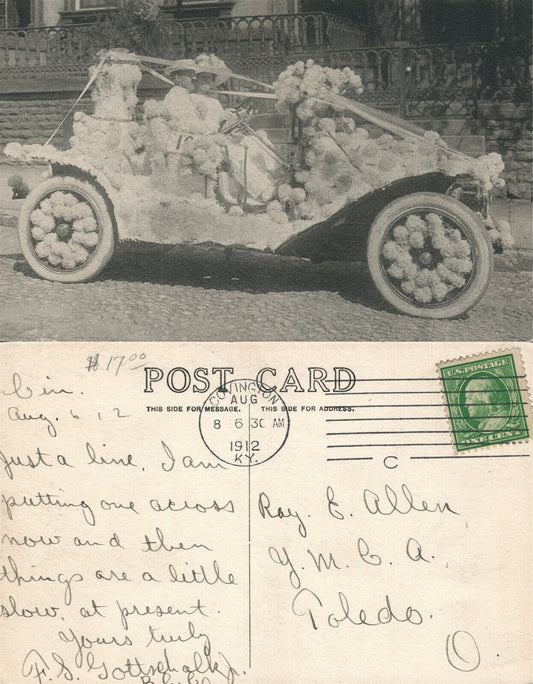 $17.00
POST CARD
THIS SIDE FOR MESSAGE.
THIS SIDE FOR ADDRESS.
COVINGTON
AUG
8 6 30 AM
1912
KY.
C
U.S. POSTAGE
ONE CENT
Cin.
Aug. 6, 12
Just a line, I am
putting one across
now and then
things are a little
slow, at present.
Yours truly
F. S. Gottschalk Jr.
Ray E. Allen
Y. M. C. A.
Toledo.
O